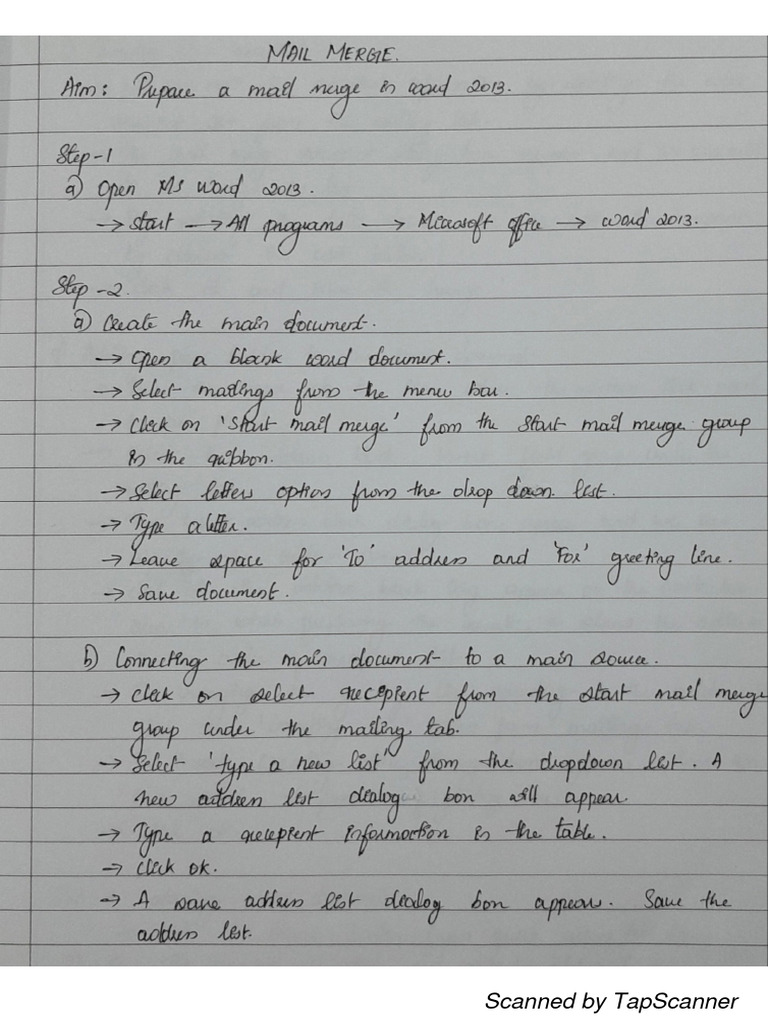 MAIL MERGE.
Aim: Prepare a mail merge in word 2013.
Step-1
a) Open MS Word 2013.
→ start → All programs → Microsoft office → word 2013.
Step-2.
a) Create the main document.
→ Open a blank word document.
→ Select mailings from the menu bar.
→ Click on 'Start mail merge' from the Start mail merge group
in the ribbon.
→ Select letters option from the drop down list.
→ Type a letter.
→ Leave space for 'To' address and 'For' greeting line.
→ Save document.
b) Connecting the main document to a main source.
→ click on select recepient from the start mail merge
group under the mailing tab.
→ Select 'type a new list' from the dropdown list. A
new address list dialog box will appear.
→ Type a recepient information in the table.
→ Click ok.
→ A save address list dialog box appear. Save the
address list.
Scanned by TapScanner